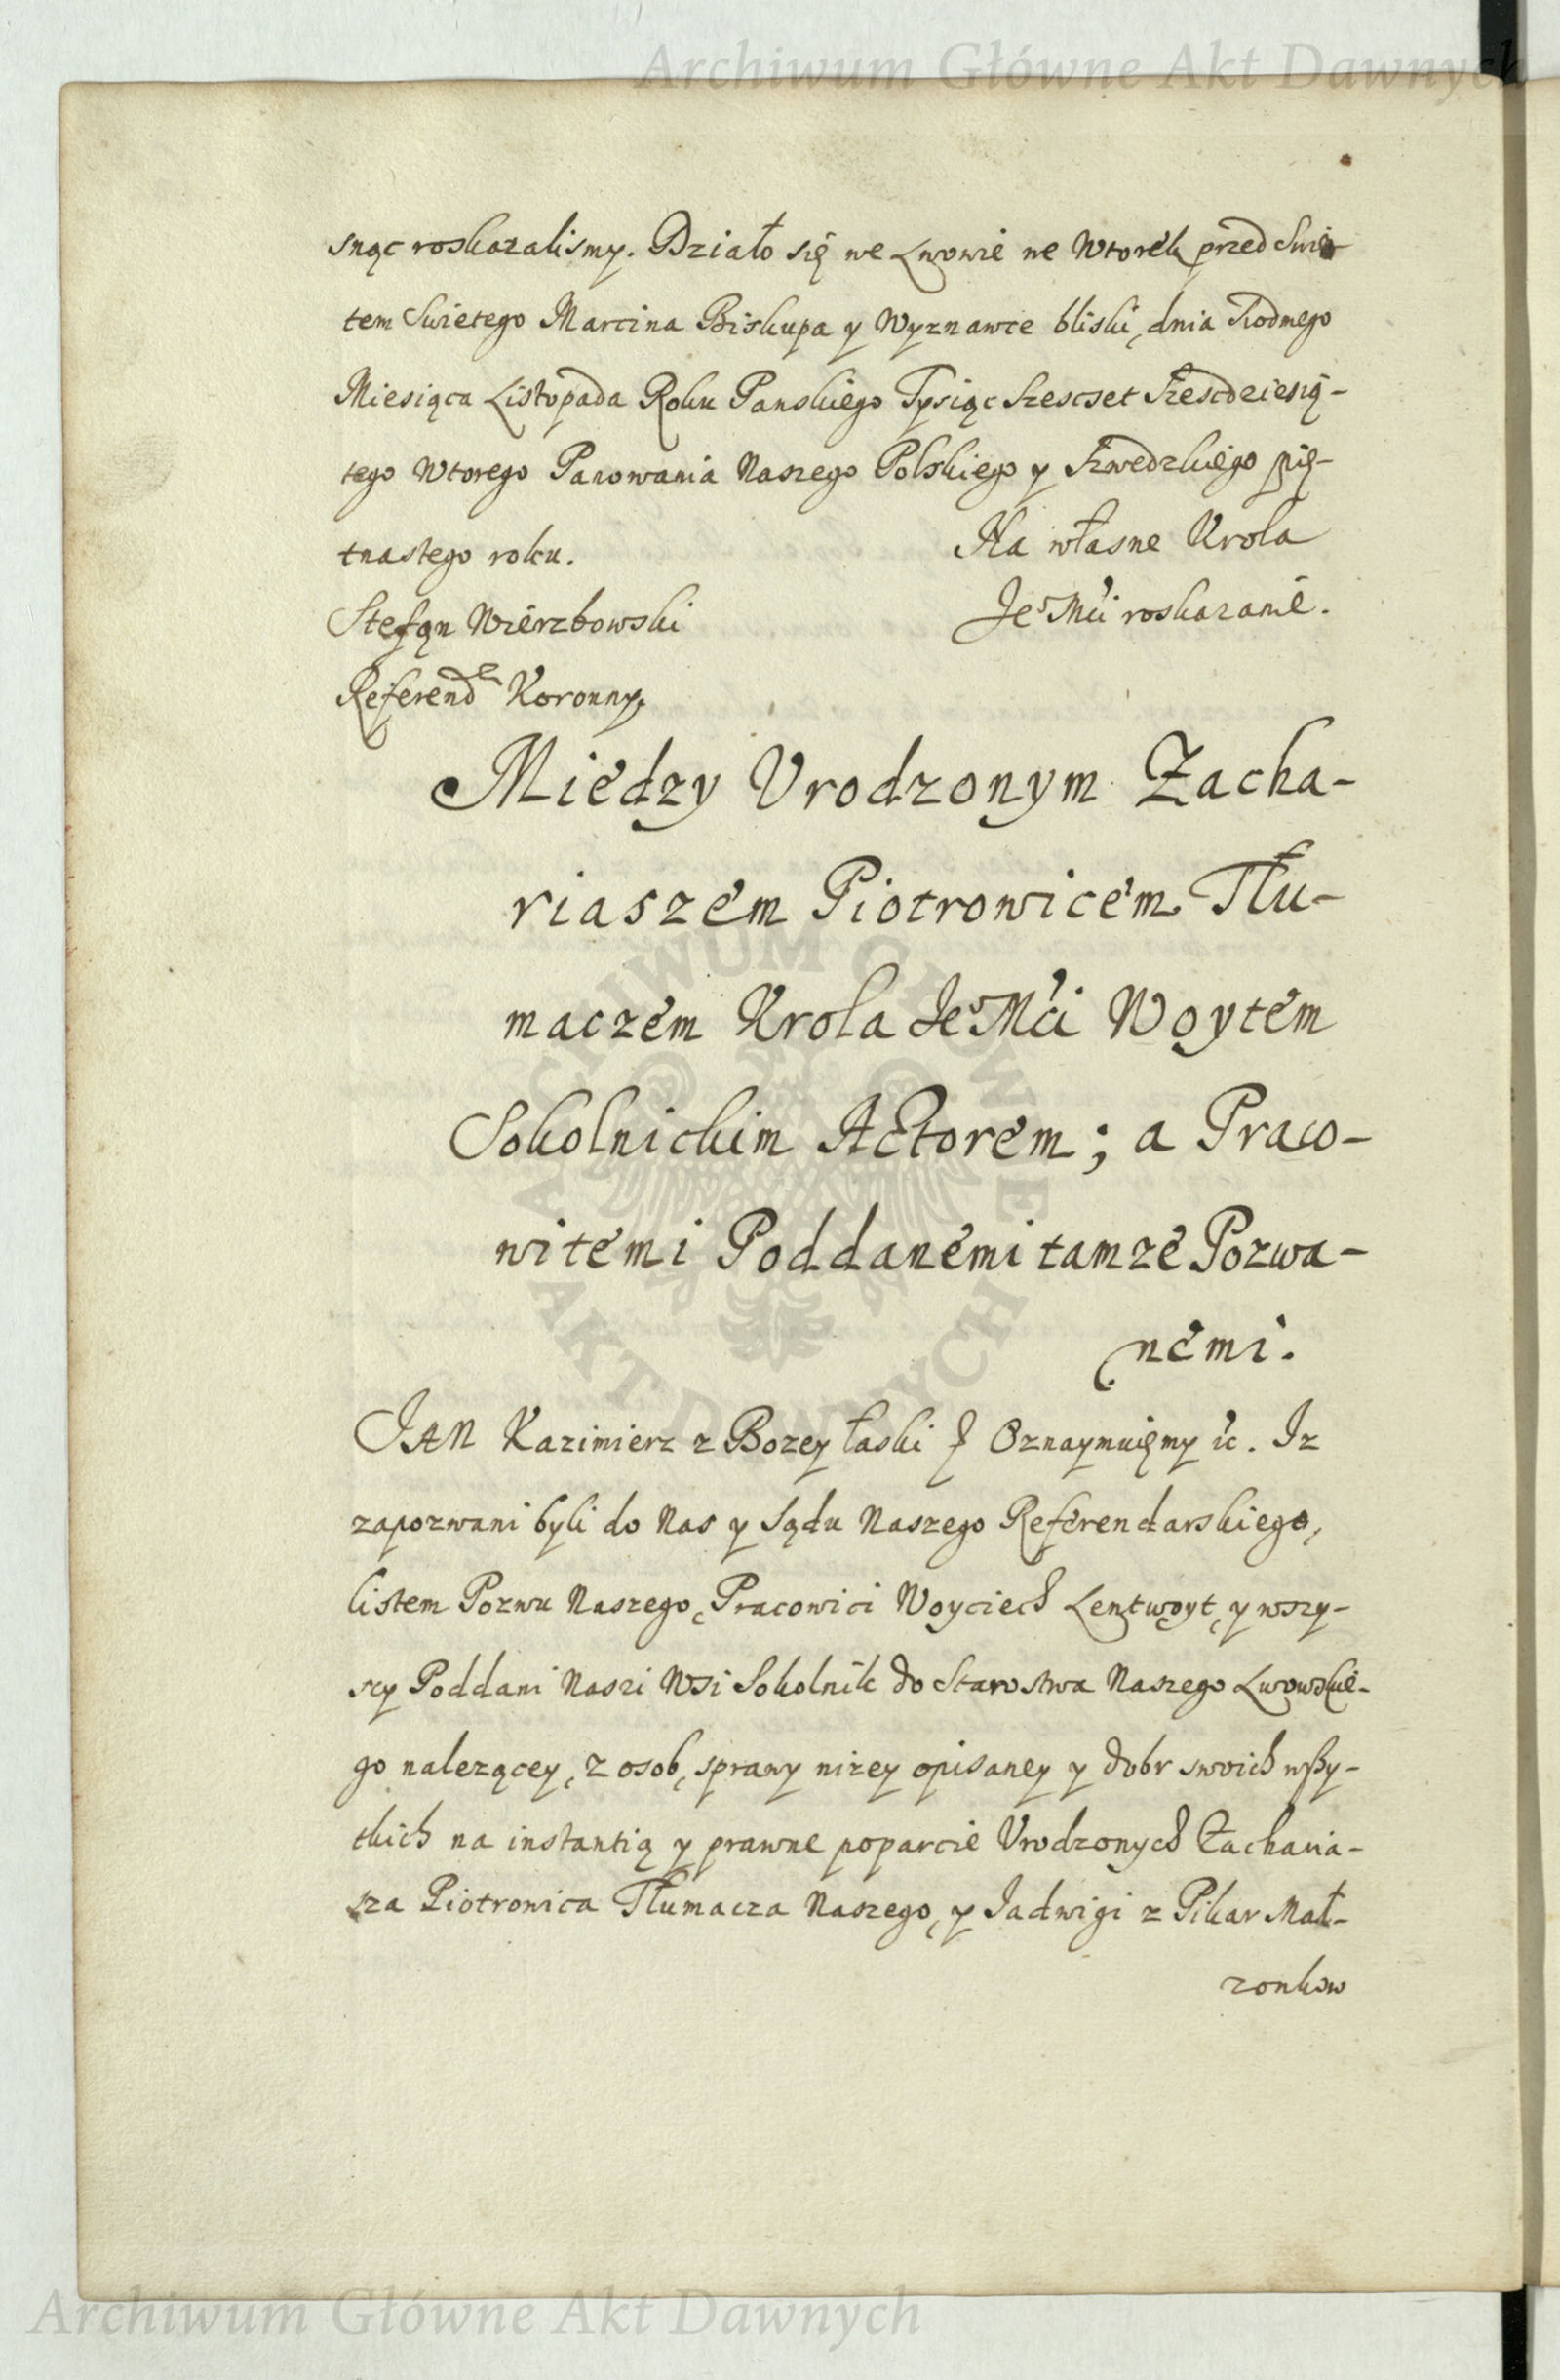 Archiwum Główne Akt Dawnych
snąc roskazalismy. Działo się we Lwowie we Wtorek przed Swię
tem Swietego Marcina Biskupa y Wyznawce bliski, dnia Siodmego
Miesiąca Listopada Roku Panskiego Tysiąc Szescset Szescdziesią-
tego Wtorego Panowania Naszego Polskiego y Szwedzkiego pię-
tnastego roku.
Na własne Krola
Stefan Wierzbowski
Je° Mći roskazanie.
Referend Koronny,
Miedzy Urodzonym Zacha-
riaszem Piotrowicem Tłu-
maczem Krola Je° Mći Woytem
Sokolnickim Actorem; a Praco-
witemi Poddanemi tamze Pozwa-
nemi.
JAN Kazimierz z Bozey łaski Oznaymuięmy ic. Iz
zapozwani byli do Nas y Sądu Naszego Referendarskiego,
listem Pozwu Naszego, Pracowici Woyciech Lentwoyt, y wszy-
scy Poddani Naszi Wsi Sokolnik do Starostwa Naszego Lwowskie-
go nalezącey, z osob, sprawy nizey opisaney y dobr swoich wßy-
tkich na instantią y prawne poparcie Urodzonych Zacharia-
sza Piotrowica Tłumacza Naszego, y Jadwigi z Pikar Mał-
zonkow
ARCHIWUM GŁÓWNE
AKT DAWNYCH
Archiwum Główne Akt Dawnych